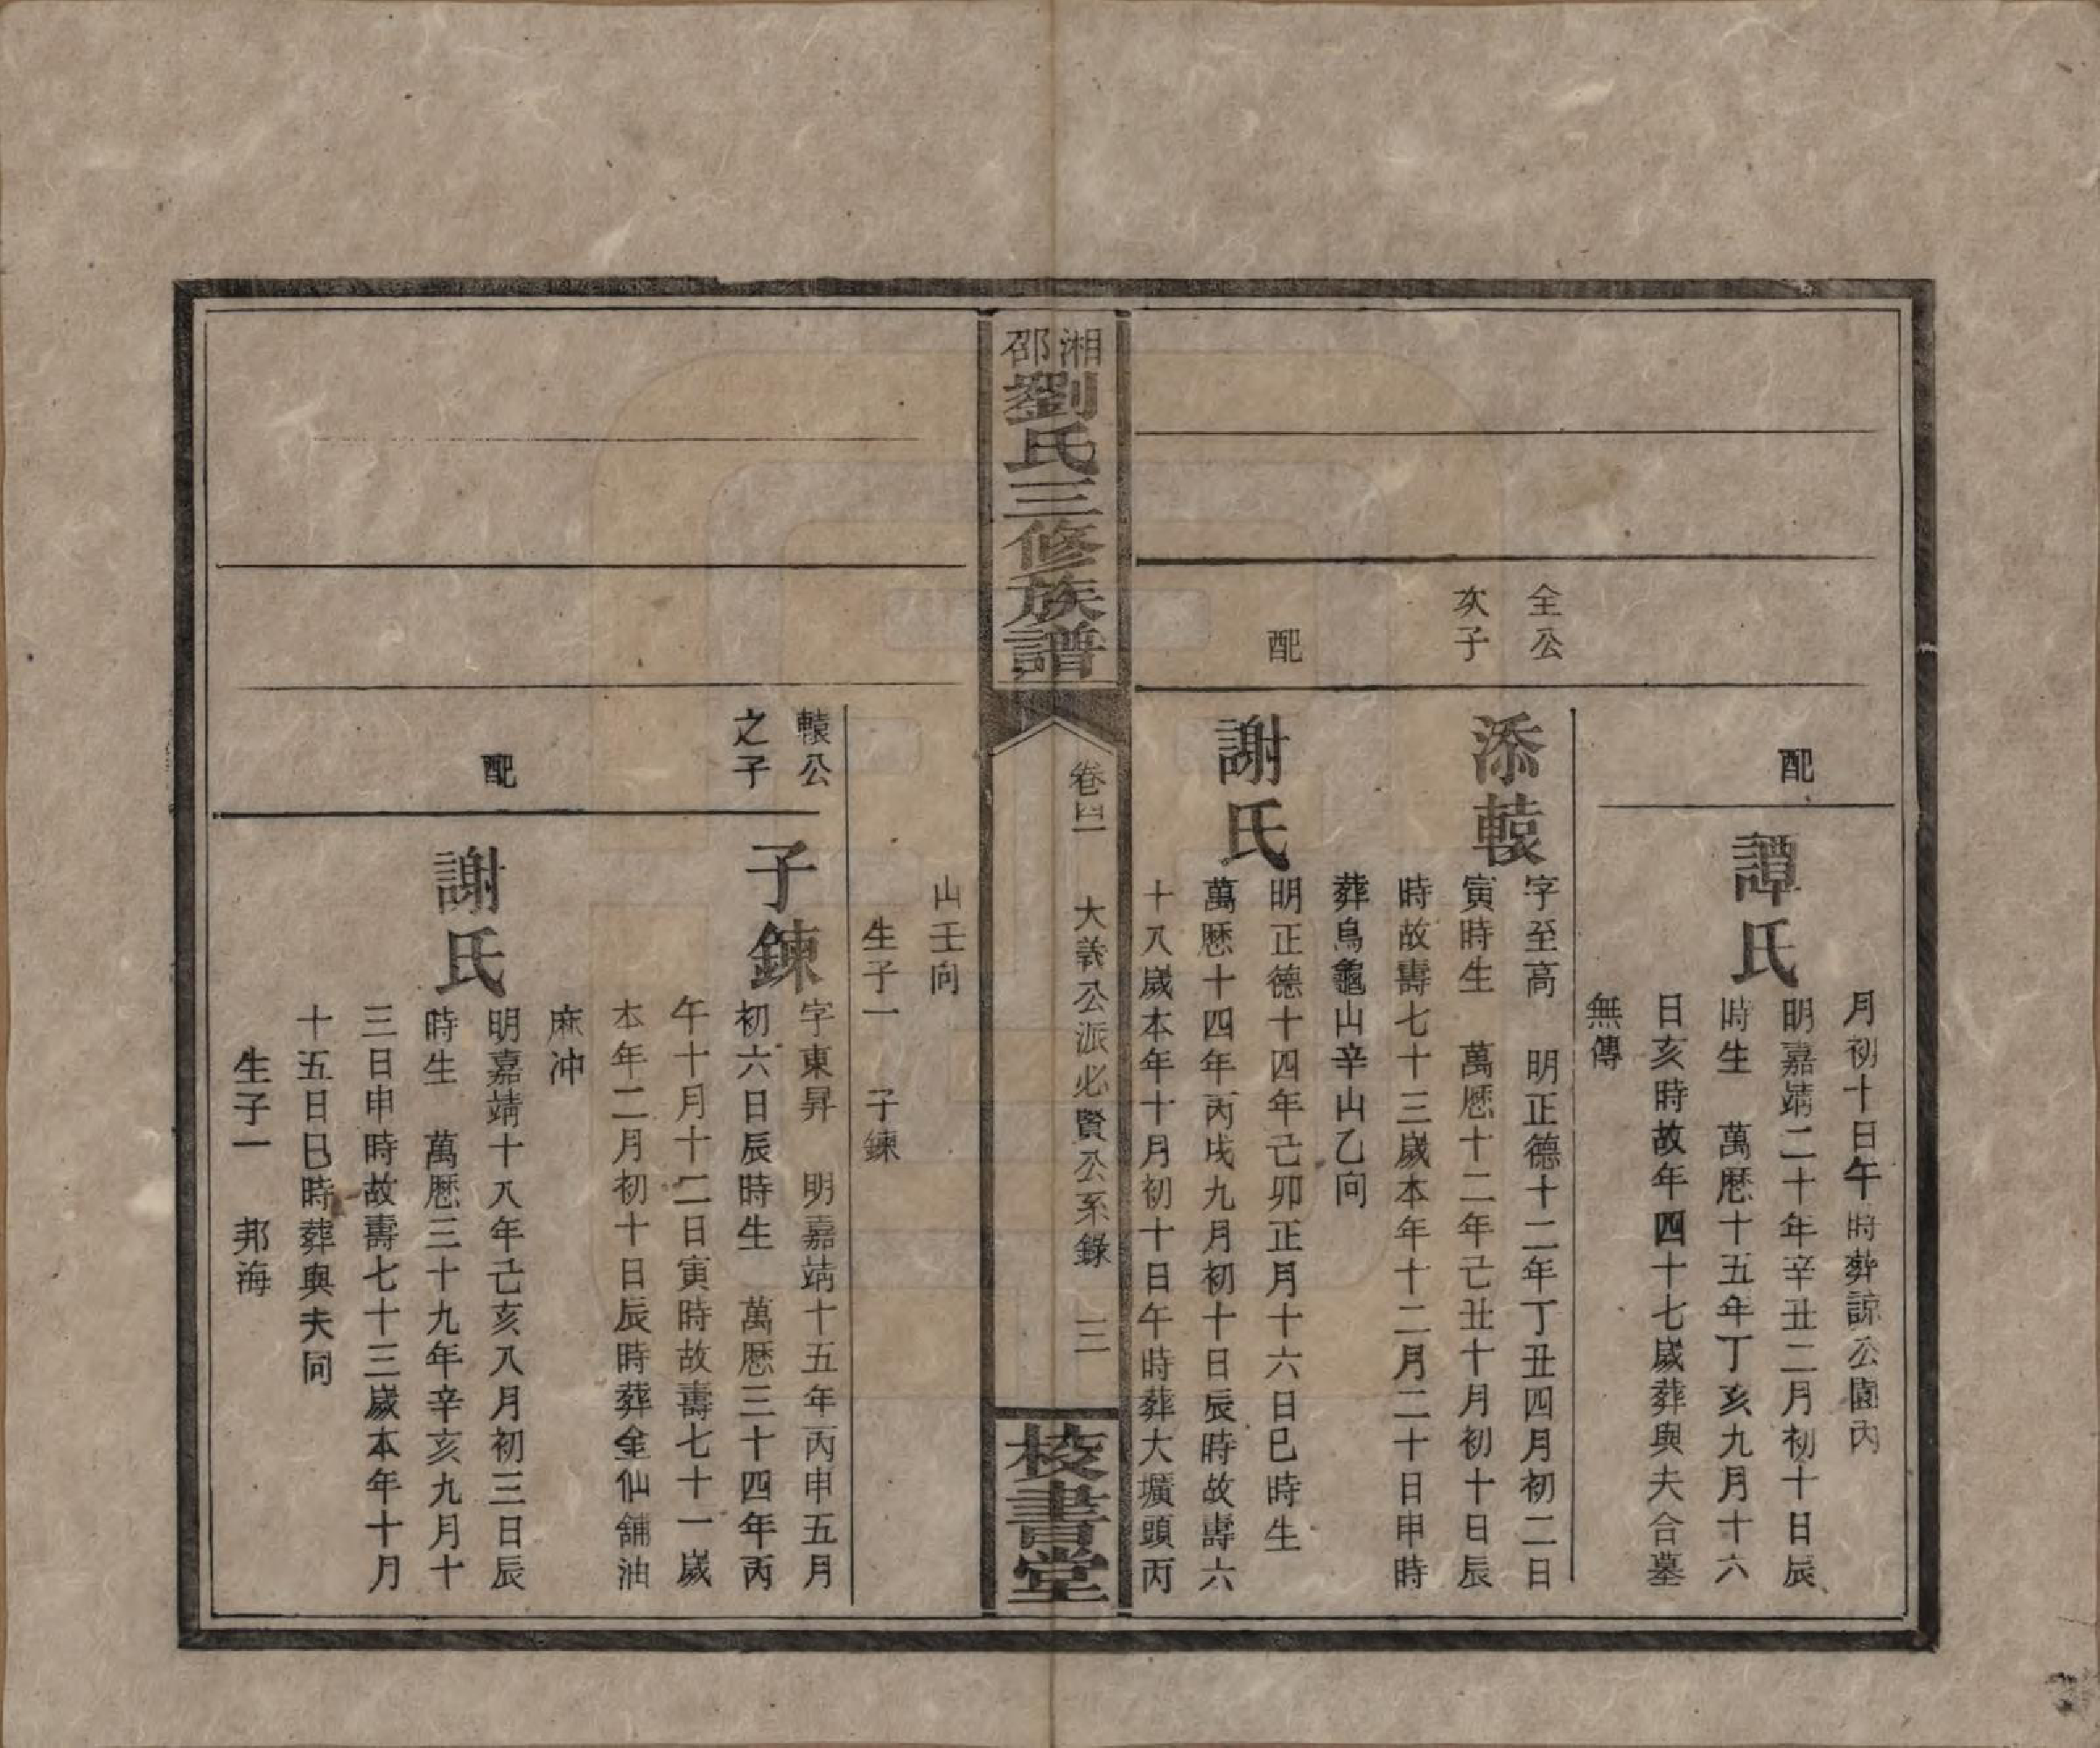 月初十日午時葬諒公園內
配
譚氏
明嘉靖二十年辛丑二月初十日辰
時生　萬曆十五年丁亥九月十六
日亥時故年四十七歲葬與夫合墓
無傳
全公
次子
添轅
字至高　明正德十二年丁丑四月初二日
寅時生　萬曆十二年己丑十月初十日辰
時故壽七十三歲本年十二月二十日申時
葬烏龜山辛山乙向
配
謝氏
明正德十四年己卯正月十六日巳時生
萬曆十四年丙戌九月初十日辰時故壽六
十八歲本年十月初十日午時葬大壙頭丙
湘邵劉氏三修族譜
卷四
大義公派必賢公系錄
三
校書堂
山壬向
生子一　子鍊
轅公
之子
子鍊
字東昇　明嘉靖十五年丙申五月
初六日辰時生　萬曆三十四年丙
午十月十二日寅時故壽七十一歲
本年二月初十日辰時葬金仙舖油
麻冲
配
謝氏
明嘉靖十八年己亥八月初三日辰
時生　萬曆三十九年辛亥九月十
三日申時故壽七十三歲本年十月
十五日巳時葬與夫同
生子一　邦海